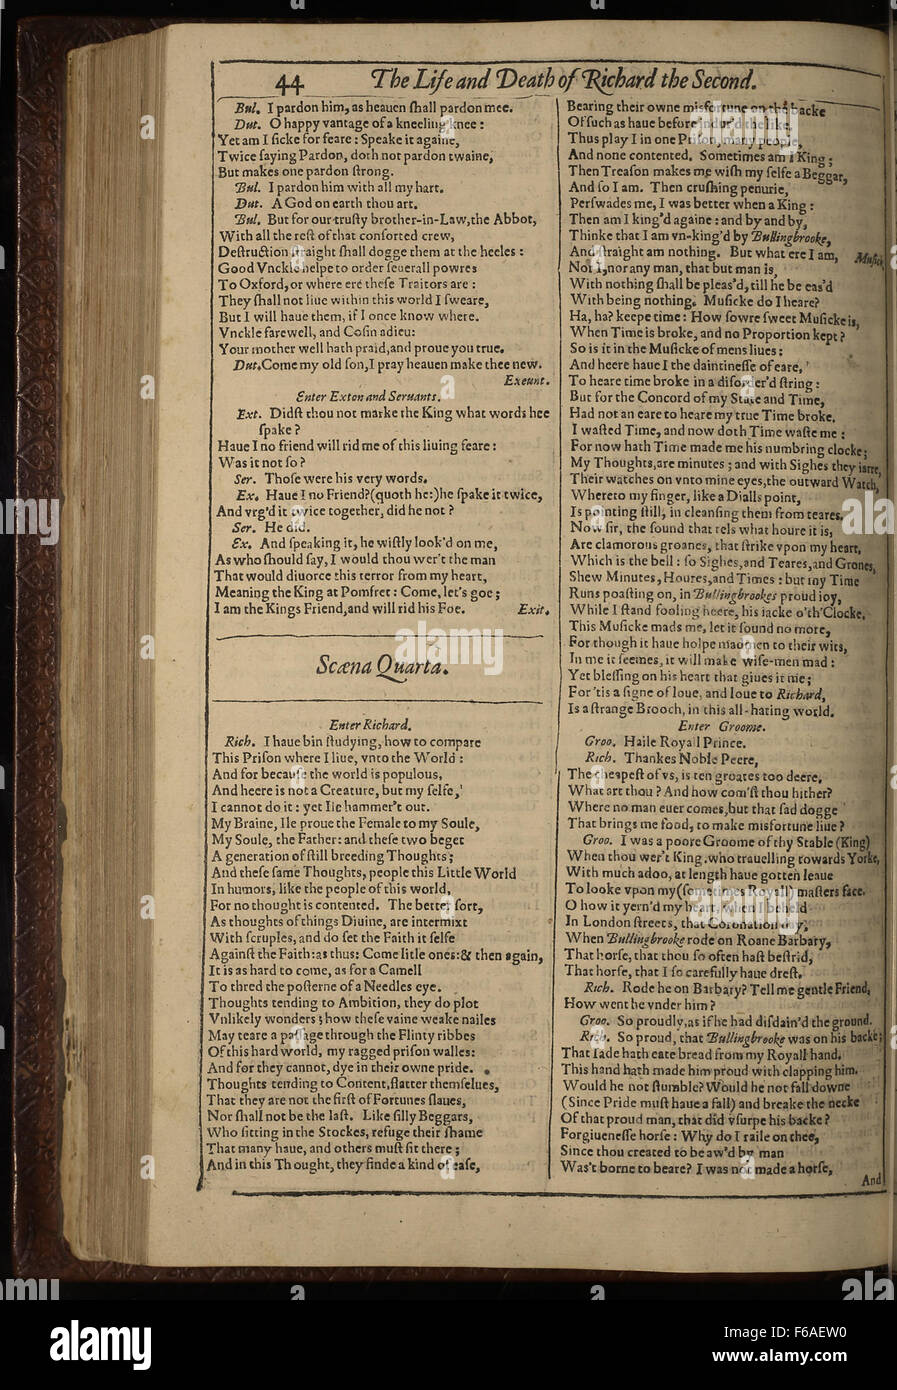 44 The Life and Death of Richard the Second.
Bul. I pardon him, as heauen ſhall pardon mee.
Dut. O happy vantage of a kneeling knee :
Yet am I ſicke for feare : Speake it againe,
Twice ſaying Pardon, doth not pardon twaine,
But makes one pardon ſtrong.
Bul. I pardon him with all my hart.
Dut. A God on earth thou art.
Bul. But for our truſty brother-in-Law, the Abbot,
With all the reſt of that conſorted crew,
Deſtruction ſtraight ſhall dogge them at the heeles :
Good Vnckle helpe to order ſeuerall powres
To Oxford, or where ere theſe Traitors are :
They ſhall not liue within this world I ſweare,
But I will haue them, if I once know where.
Vnckle farewell, and Coſin adieu :
Your mother well hath praid, and proue you true.
Dut. Come my old ſon, I pray heauen make thee new.
Exeunt.
Enter Exton and Seruants.
Ext. Didſt thou not marke the King what words hee
ſpake ?
Haue I no friend will rid me of this liuing feare :
Was it not ſo ?
Ser. Thoſe were his very words.
Ex. Haue I no Friend? (quoth he:) he ſpake it twice,
And vrg'd it twice together, did he not ?
Ser. He did.
Ex. And ſpeaking it, he wiſtly look'd on me,
As who ſhould ſay, I would thou wer't the man
That would diuorce this terror from my heart,
Meaning the King at Pomfret : Come, let's goe ;
I am the Kings Friend, and will rid his Foe. Exit.
Scæna Quarta.
Enter Richard.
Rich. I haue bin ſtudying, how to compare
This Priſon where I liue, vnto the World :
And for becauſe the world is populous,
And heere is not a Creature, but my ſelfe,
I cannot do it : yet Ile hammer't out.
My Braine, Ile proue the Female to my Soule,
My Soule, the Father : and theſe two beget
A generation of ſtill breeding Thoughts ;
And theſe ſame Thoughts, people this Little World
In humors, like the people of this world,
For no thought is contented. The better ſort,
As thoughts of things Diuine, are intermixt
With ſcruples, and do ſet the Faith it ſelfe
Againſt the Faith : as thus : Come litle ones : & then again,
It is as hard to come, as for a Camell
To thred the poſterne of a Needles eye.
Thoughts tending to Ambition, they do plot
Vnlikely wonders ; how theſe vaine weake nailes
May teare a paſſage through the Flinty ribbes
Of this hard world, my ragged priſon walles :
And for they cannot, dye in their owne pride.
Thoughts tending to Content, flatter themſelues,
That they are not the firſt of Fortunes ſlaues,
Nor ſhall not be the laſt. Like ſilly Beggars,
Who ſitting in the Stockes, refuge their ſhame
That many haue, and others muſt ſit there ;
And in this Thought, they finde a kind of eaſe,
Bearing their owne misfortune on the backe
Of ſuch as haue before indur'd the like.
Thus play I in one Priſon, many people,
And none contented. Sometimes am I King ;
Then Treaſon makes me wiſh my ſelfe a Beggar,
And ſo I am. Then cruſhing penurie,
Perſwades me, I was better when a King :
Then am I king'd againe : and by and by,
Thinke that I am vn-king'd by Bullingbrooke,
And ſtraight am nothing. But what ere I am, Muſick
Nor I, nor any man, that but man is,
With nothing ſhall be pleas'd, till he be eas'd
With being nothing. Muſicke do I heare?
Ha, ha? keepe time : How ſowre ſweet Muſicke is,
When Time is broke, and no Proportion kept ?
So is it in the Muſicke of mens liues :
And heere haue I the daintineſſe of eare,
To heare time broke in a diſorder'd ſtring :
But for the Concord of my State and Time,
Had not an eare to heare my true Time broke.
I waſted Time, and now doth Time waſte me :
For now hath Time made me his numbring clocke ;
My Thoughts, are minutes ; and with Sighes they iarre,
Their watches on vnto mine eyes, the outward Watch,
Whereto my finger, like a Dialls point,
Is pointing ſtill, in cleanſing them from teares.
Now ſir, the ſound that tels what houre it is,
Are clamorous groanes, that ſtrike vpon my heart,
Which is the bell : ſo Sighes, and Teares, and Grones,
Shew Minutes, Houres, and Times : but my Time
Runs poaſting on, in Bullingbrookes proud ioy,
While I ſtand fooling heere, his iacke o'th'Clocke.
This Muſicke mads me, let it ſound no more,
For though it haue holpe madmen to their wits,
In me it ſeemes, it will make wiſe-men mad :
Yet bleſſing on his heart that giues it me ;
For 'tis a ſigne of loue, and loue to Richard,
Is a ſtrange Brooch, in this all-hating world.
Enter Groome.
Groo. Haile Royall Prince.
Rich. Thankes Noble Peere,
The cheapeſt of vs, is ten groates too deere.
What art thou ? And how com'ſt thou hither?
Where no man euer comes, but that ſad dogge
That brings me food, to make misfortune liue ?
Groo. I was a poore Groome of thy Stable (King)
When thou wer't King : who trauelling towards Yorke,
With much adoo, at length haue gotten leaue
To looke vpon my (ſometimes Royall) maſters face.
O how it yern'd my heart, when I beheld
In London ſtreets, that Coronation day,
When Bullingbrooke rode on Roane Barbary,
That horſe, that thou ſo often haſt beſtrid,
That horſe, that I ſo carefully haue dreſt.
Rich. Rode he on Barbary? Tell me gentle Friend,
How went he vnder him ?
Groo. So proudly, as if he had diſdain'd the ground.
Rich. So proud, that Bullingbrooke was on his backe ;
That Iade hath eate bread from my Royall hand.
This hand hath made him proud with clapping him.
Would he not ſtumble? Would he not fall downe
(Since Pride muſt haue a fall) and breake the necke
Of that proud man, that did vſurpe his backe ?
Forgiueneſſe horſe : Why do I raile on thee,
Since thou created to be aw'd by man
Was't borne to beare? I was not made a horſe,
And
alamy stock photo
F6AEW0
www.alamy.com